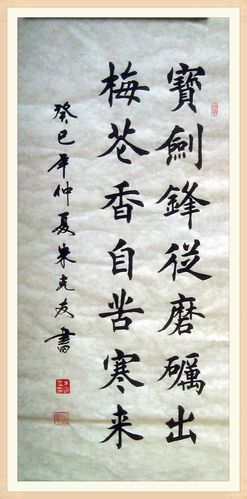 寶劍鋒從磨礪出
梅花香自苦寒來
癸巳年仲夏朱克友書